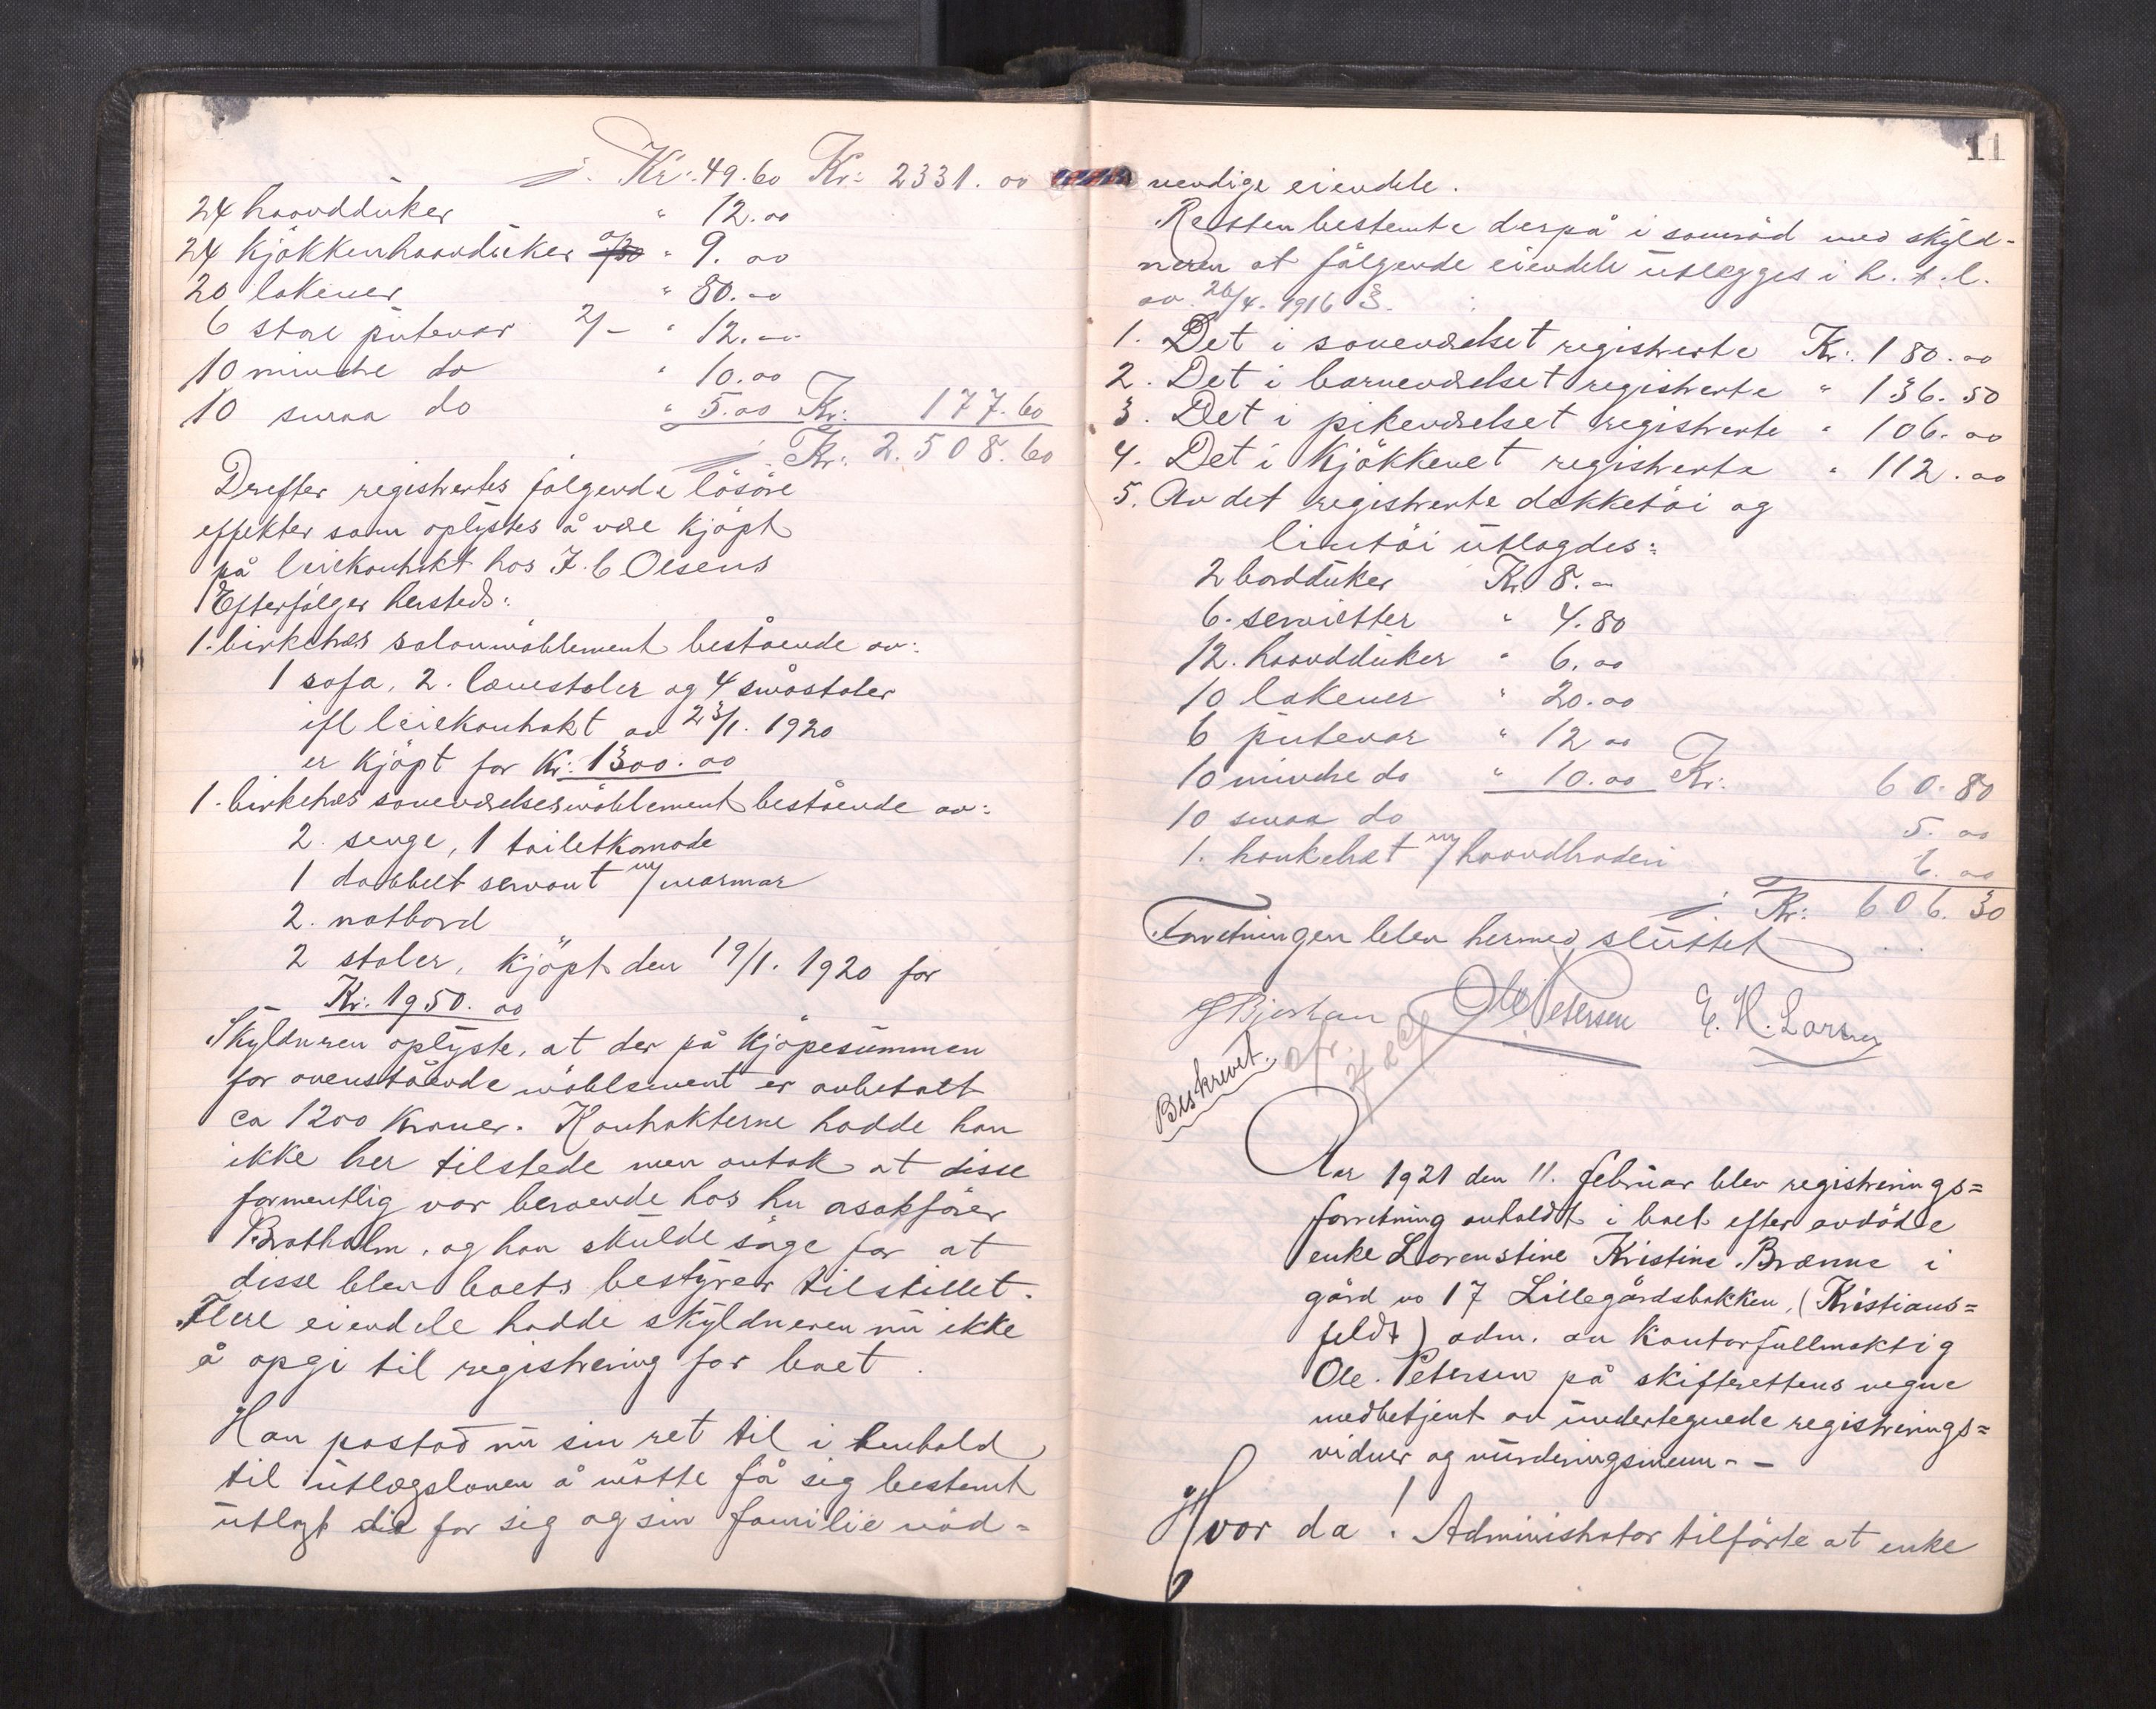 Kr: 49.60 Kr: 2331.00
24 haandduker " 12.00
24 kjøkkenhaandduker " 9.00
20 lakener " 80.00
6 store putevar 2/- " 12.00
10 mindre do " 10.00
10 smaa do " 5.00 Kr: 177.60
Kr: 2.508.60
Derefter registrertes følgende løsøre
effekter som oplystes å være kjøpt
på leiekontrakt hos J. C Olsens
Efterfølger hersteds:
1. birketræs salonmøblement bestående av:
1 sofa, 2. lænestoler og 4 småstoler
ifl leiekontrakt av 23/1. 1920
er kjøpt for Kr: 1300.00
1. birketræs soveværelsesmøblement bestående av:
2. senge, 1 toiletkomode
1 dobbelt servant m/ marmor
2. natbord
2 stoler, kjøpt den 19/1. 1920 for
Kr. 1950.00
Skyldneren oplyste, at der på kjøpesummen
for ovenstående møblement er avbetalt
ca 1200 kroner. Kontrakterne hadde han
ikke her tilstede men antok at disse
formentlig var beroende hos hr. o.r.sakfører
Bratholm, og han skulde sørge for at
disse blev boets bestyrer tilstillet.
Flere eiendele hadde skyldneren nu ikke
å opgi til registrering for boet.
Han påstod nu sin ret til i henhold
til utlægsloven å måtte få sig bestemt
utlagt de for sig og sin familie nød-
11
vendige eiendele.
Retten bestemte derpå i samråd med skyld-
neren at følgende eiendele utlægges i h. t. l.
av 26/4. 1916 §.
1. Det i soveværelset registrerte Kr: 180.00
2. Det i barneværelset registrerte " 136.50
3. Det i pikeværelset registrerte " 106.00
4. Det i kjøkkenet registrerte " 112.00
5. Av det registrerte dækketøi og
lintøi utlagdes:
2 bordduker Kr 8.-
6. servietter " 4.80
12. haandduker " 6.00
10 lakener " 20.00
6 putevar " 12.00
10 mindre do " 10.00 Kr: 60.80
10 smaa do 5.00
1. hanketræt m/ haandbroderi 6.00
Kr: 606.30
Forretningen blev hermed sluttet
Ole Petersen E. H. Larsen
Beskrevet.
Aar 1921 den 11. februar blev registrerings=
forretning avholdt i boet efter avdøde
enke Lorenstine Kristine Brænne i
gård no 17 Lillegårdsbakken, (Kristians=
feldt) adm. av kontorfuldmæktig
Ole. Petersen på skifterettens vegne
medbetjent av undertegnede registrerings=
vidner og vurderingsmenn. -
Hvor da! Administrator tilførte at enke